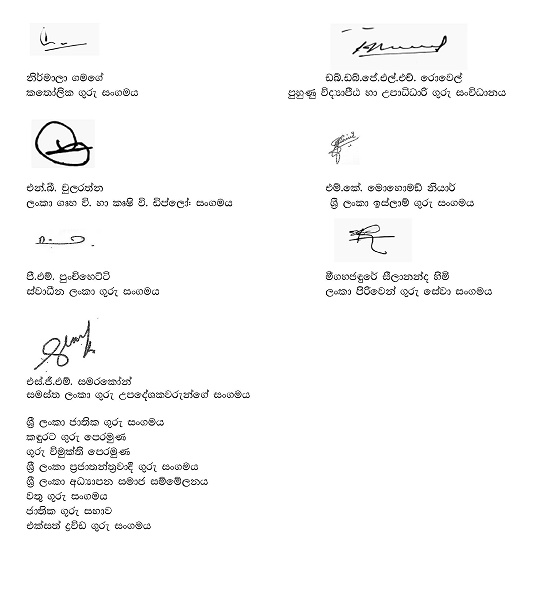 නිර්මාලා ගමගේ
කතෝලික ගුරු සංගමය
ඩබ්.ඩබ්.ජේ.එල්.එච්. රොවෙල්
පුහුණු විද්‍යාපීඨ හා උපාධිධාරී ගුරු සංවිධානය
එන්.බී. චුලරත්න
ලංකා ගෘහ වි. හා කෘෂි වි. ඩිප්ලෝ: සංගමය
එම්.කේ. මොහොමඩ් නියාර්
ශ්‍රී ලංකා ඉස්ලාම් ගුරු සංගමය
පී.එම්. පුංචිහෙට්ටි
ස්වාධීන ලංකා ගුරු සංගමය
මීගහජඳුරේ සීලානන්ද හිමි
ලංකා පිරිවෙන් ගුරු සේවා සංගමය
එස්.ජී.එම්. සමරකෝන්
සමස්ත ලංකා ගුරු උපදේශකවරුන්ගේ සංගමය
ශ්‍රී ලංකා ජාතික ගුරු සංගමය
කඳුරට ගුරු පෙරමුණ
ගුරු විමුක්ති පෙරමුණ
ශ්‍රී ලංකා ප්‍රජාතන්ත්‍රවාදී ගුරු සංගමය
ශ්‍රී ලංකා අධ්‍යාපන සමාජ සම්මේලනය
වතු ගුරු සංගමය
ජාතික ගුරු සභාව
එක්සත් ද්‍රවිඩ ගුරු සංගමය